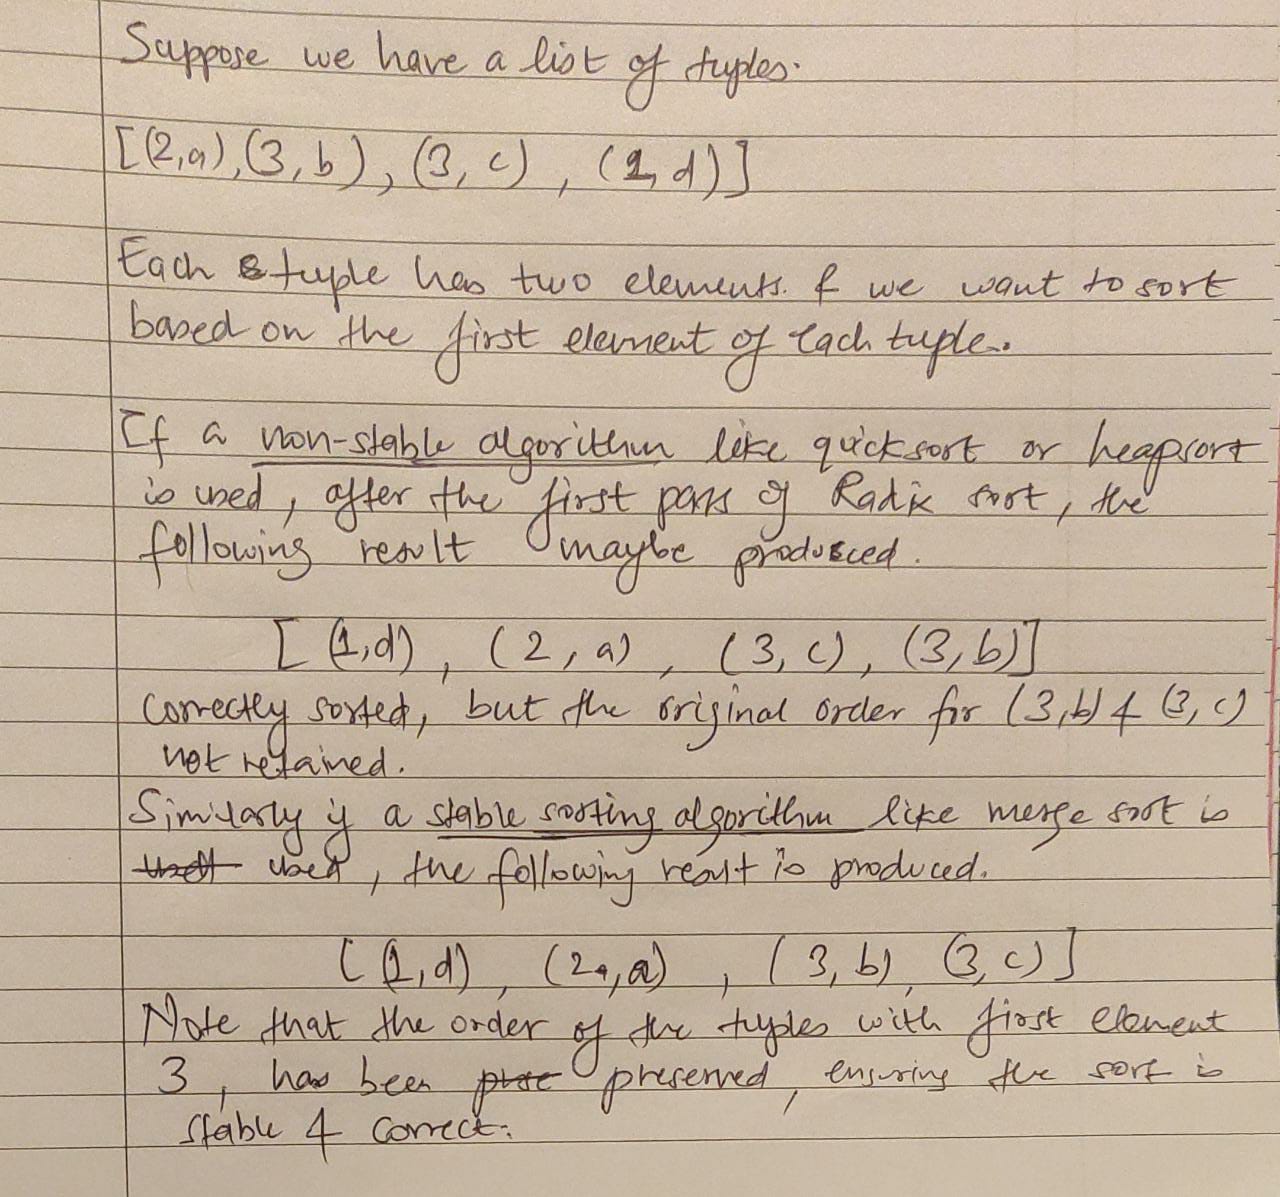 Suppose we have a list of tuples.
[(2,a),(3,b),(3,c),(1,d)]
Each tuple has two elements. & we want to sort
based on the first element of each tuple.
If a non-stable algorithm like quicksort or heapsort
is used, after the first pass of Radix sort, the
following result maybe produced.
[(1,d), (2,a), (3,c), (3,b)]
Correctly sorted, but the original order for (3,b) & (3,c)
not retained.
Similarly if a stable sorting algorithm like merge sort is
used, the following result is produced.
[(1,d), (2,a), (3,b), (3,c)]
Note that the order of the tuples with first element
3, has been preserved, ensuring the sort is
stable & correct.